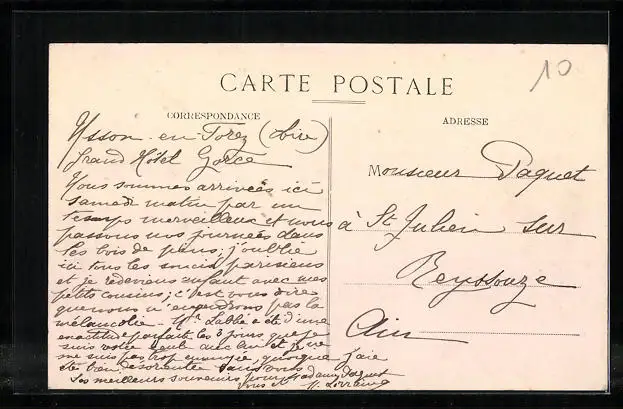 10
CARTE POSTALE
CORRESPONDANCE
ADRESSE
Usson-en-Forez (Loire)
Grand Hôtel Gorce
Nous sommes arrivées ici
samedi matin par un
temps merveilleux et nous
passons nos journées dans
les bois de pins; j'oublie
ici tous les soucis parisiens
et je redeviens enfant avec mes
petits cousins; c'est vous dire
que nous n'engendrons pas la
mélancolie. Mr Labbé a été d'une
exactitude parfaite les 3 jours que je
suis restée seule avec lui et je ne
me suis pas trop ennuyée, quoique j'aie
été bien désorientée sans vous
Mes meilleurs souvenirs pour Madame Paquet
vous
Monsieur Paquet
à St Julien sur
Reyssouze
Ain